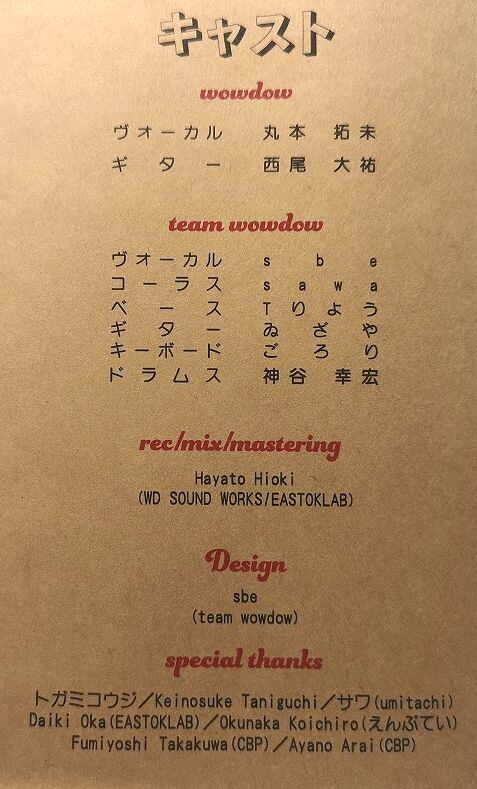 キャスト
wowdow
ヴォーカル 丸本 拓未
ギター 西尾 大祐
team wowdow
ヴォーカル sbe
コーラス sawa
ベース Tりょう
ギター ゐざや
キーボード ごろり
ドラムス 神谷 幸宏
rec/mix/mastering
Hayato Hioki
(WD SOUND WORKS/EASTOKLAB)
Design
sbe
(team wowdow)
special thanks
トガミコウジ／Keinosuke Taniguchi／サワ(umitachi)
Daiki Oka(EASTOKLAB)／Okunaka Koichiro(えんぷてい)
Fumiyoshi Takakuwa(CBP)／Ayano Arai(CBP)